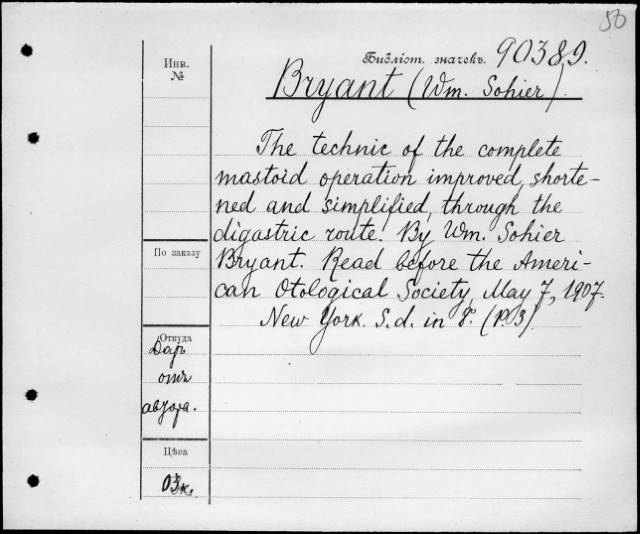 50
Библіот. значекъ. 90389.
Инв.
№
Bryant (Wm. Sohier).
The technic of the complete
mastoid operation improved, shorte-
ned and simplified, through the
digastric route. By Wm. Sohier
Bryant. Read before the Ameri-
can Otological Society, May 7, 1907.
New York. S.d. in 8°. (P.3)
По заказу
Откуда
Даръ
отъ
автора.
Цѣна